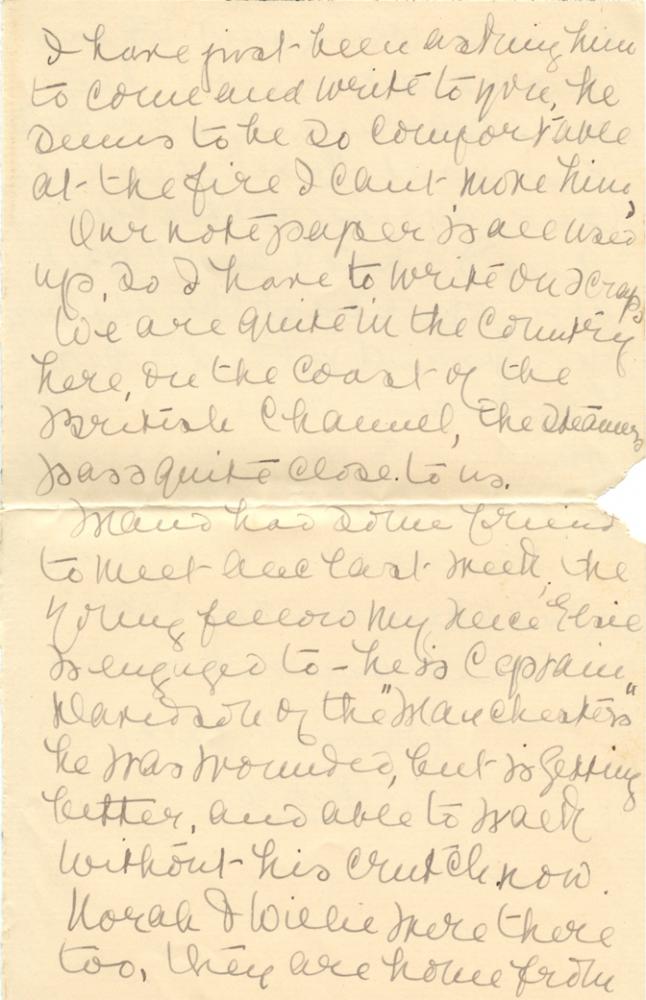 I have just been asking him
to come and write to you, he
seems to be so comfortable
at the fire I cant move him,
Our notepaper is all used
up, so I have to write on scraps
We are quite in the Country
here, on the Coast of the
British Channel, the steamers
pass quite close to us.
Maud had some friend
to meet all last week, the
young fellow my niece Elsie
is engaged to - he is Captain
Davidson of the "Manchesters"
he was wounded, but is getting
better, and able to walk
without his crutch now.
Norah & Willie were there
too, they are home from